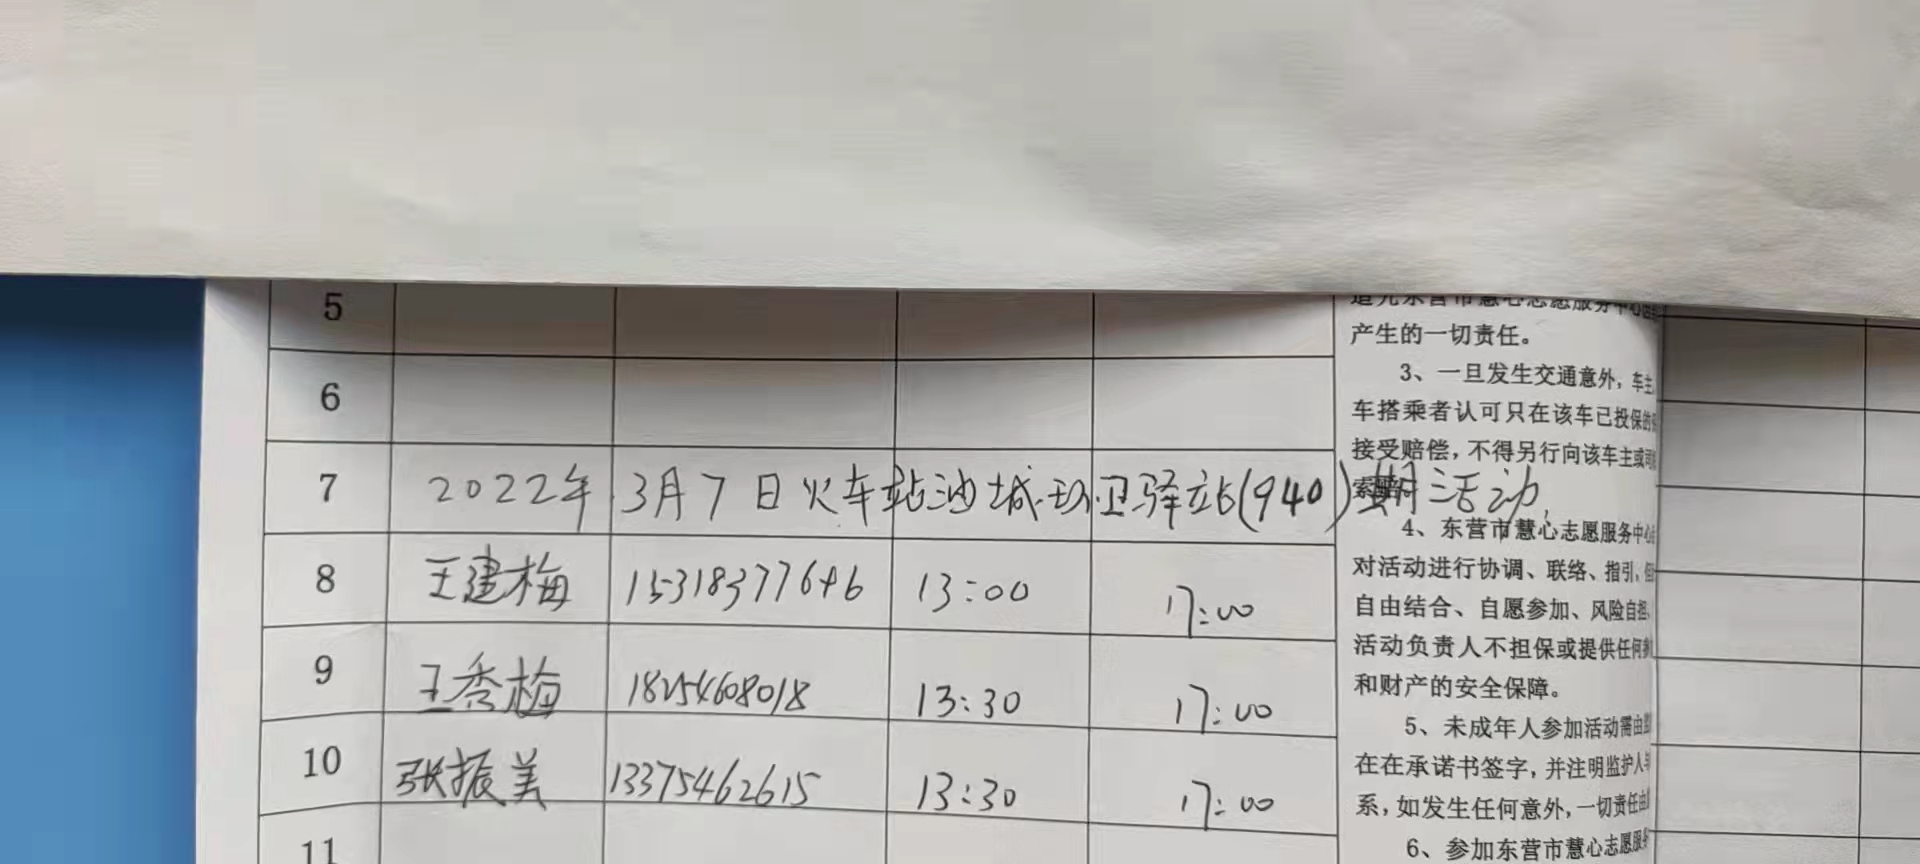 5
6
7 2022年3月7日火车站油城环卫驿站(940)期活动
8 王建梅 15318377646 13:00 17:00
9 王秀梅 18254608018 13:30 17:00
10 张振美 13375462615 13:30 17:00
11
东营市慧心志愿服务中心
产生的一切责任。
3、一旦发生交通意外，车主
车搭乘者认可只在该车已投保的
接受赔偿，不得另行向该车主或
4、东营市慧心志愿服务中心
对活动进行协调、联络、指引，但
自由结合、自愿参加、风险自担
活动负责人不担保或提供任何
和财产的安全保障。
5、未成年人参加活动需由
在在承诺书签字，并注明监护人
系，如发生任何意外，一切责任由
6、参加东营市慧心志愿服务